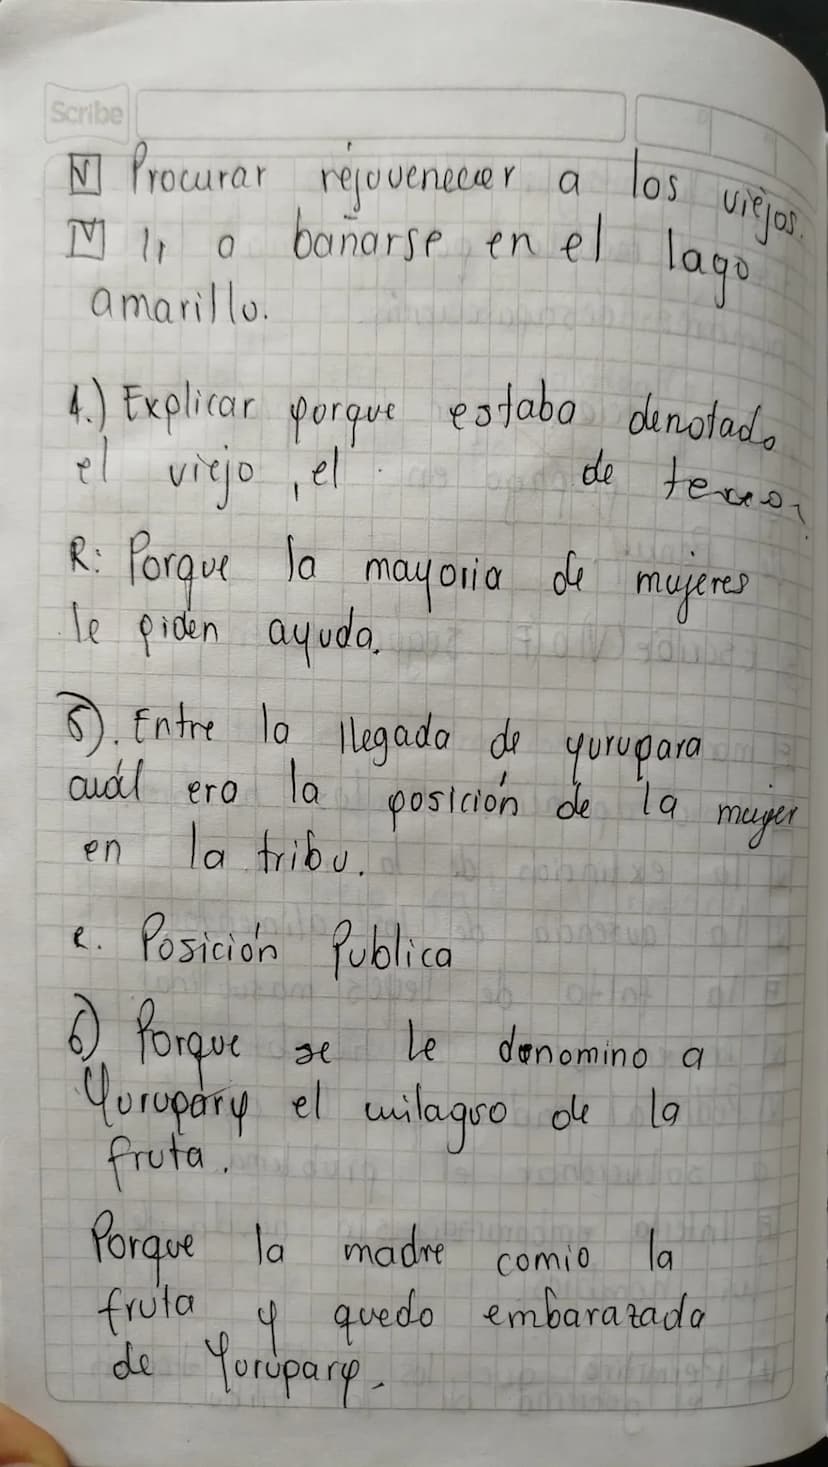 Scribe
V Procurar rejovenecer a los viejos.
V Ir a bañarse en el lago
amarillo.
4.) Explicar porque estaba denotado
el viejo, el . de
R: Porque la mayoria de mujeres
le piden ayuda.
5). Entre la llegada de yurupara
cuál era la posición de la mujer
en la tribu.
R. Posición Publica
6) Porque se le denomino a
Yurupary el milagro de la
fruta.
Porque la madre comio la
fruta y quedo embarazada
de Yurupary.